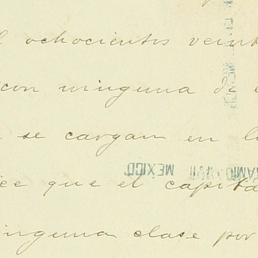 ochocientos veint
con ninguna de
se cargan en l
que el capita
MEXICO
inguna clase por